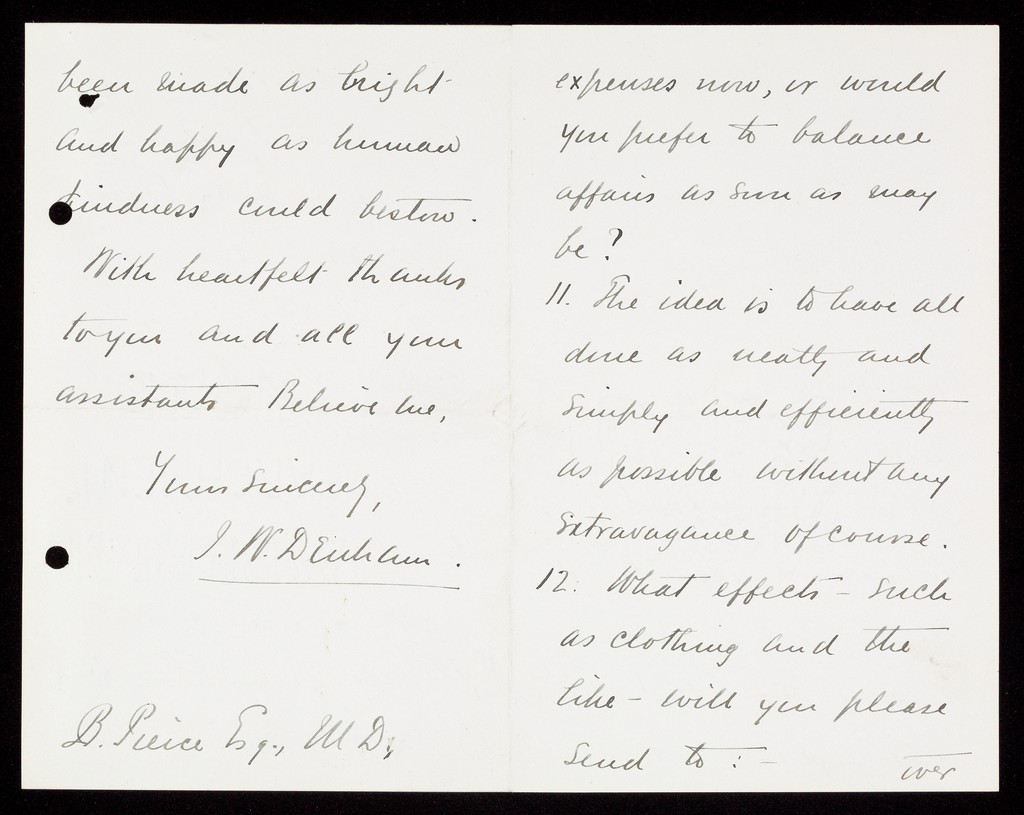 been made as bright
and happy as human
kindness could bestow.
With heartfelt thanks
to you and all your
assistants Believe me,
Yours sincerely,
J. W. Denham.
B. Pierce Esq., M D.,
expenses now, or would
you prefer to balance
affairs as soon as may
be?
11. The idea is to have all
done as neatly and
simply and efficiently
as possible without any
extravagance of course.
12. What effects – such
as clothing and the
like – will you please
send to : –
over